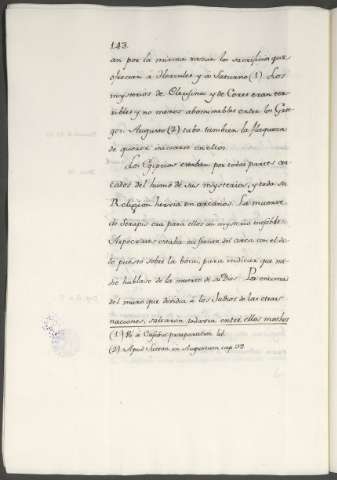 143.
an por la misma razon los sacrificios que
ofrecian a Hercules y a Saturno (1). Los
mysterios de Eleusina y de Ceres eran ter-
ribles y no menos abominables entre los Grie-
gos. Augusto (2) tubo tambien la flaqueza
de querer iniciarse en ellos.
Los Egipcios estaban por todas partes cer-
cados del humo de sus mysterios, y toda su
Religion hervia en arcanos. La muerte
de Serapis era para ellos un mysterio inefable.
Arpocrates estaba en frente del arca con el de-
do puesto sobre la boca, para indicar que na-
die hablase de la muerte de su Dios. Por encima
del muro que dividia à los Sabios de las otras
naciones, saltaron todavia entre ellos muchos
(1) Vè à Eusebio preparation lib.
(2) Apud Sueton in Augustum cap. 93.